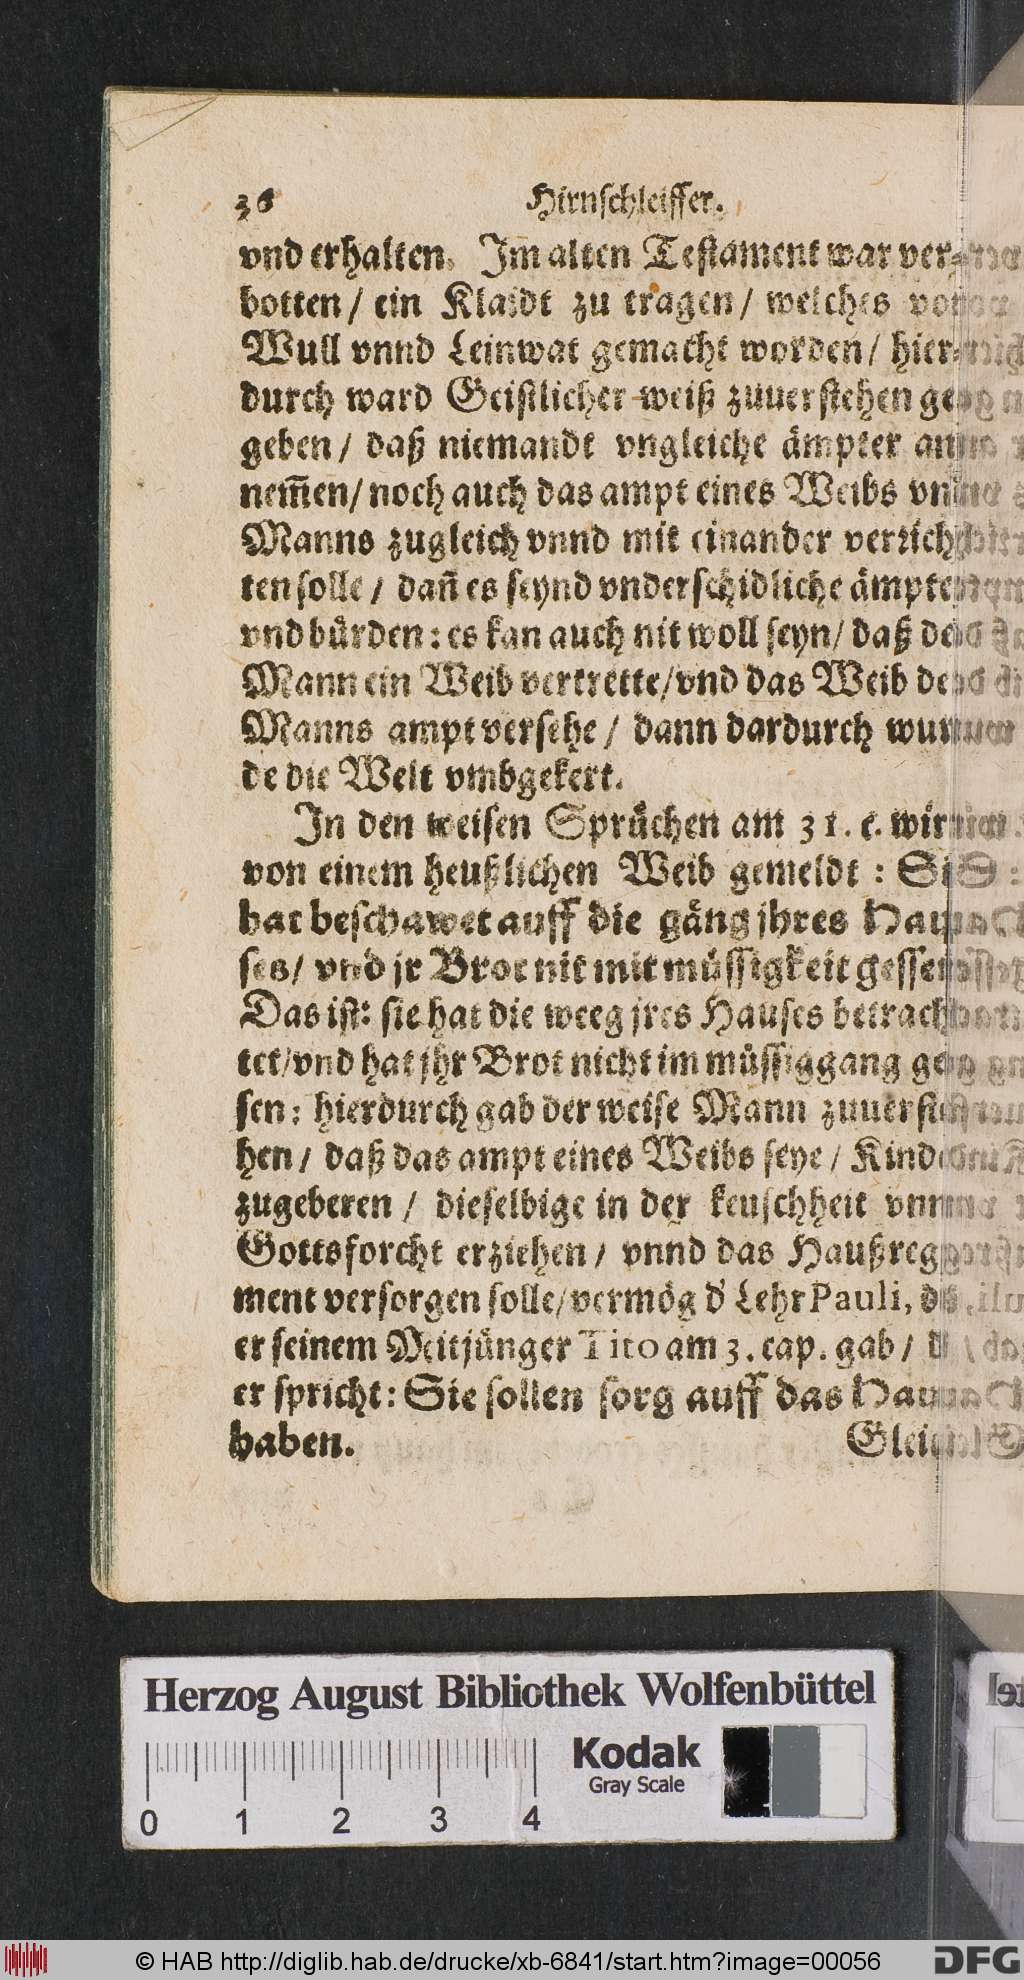 36 Hirnschleiffer.
vnd erhalten. Im̃ alten Testament war ver-
botten / ein Klaidt zu tragen / welches von
Wull vnnd Leinwat gemacht worden / hier-
durch ward Geistlicher weiß zuuerstehen ge-
geben / daß niemandt vngleiche ämpter an-
nem̃en / noch auch das ampt eines Weibs vnd
Manns zugleich vnnd mit einander verrich-
ten solle / dañ es seynd vnderschidliche ämpter
vnd bürden: es kan auch nit woll seyn / daß der
Mann ein Weib vertrette / vnd das Weib deß
Manns ampt versehe / dann dardurch wur-
de die Welt vmbgekert.
In den weisen Sprüchen am 31. c. wirt
von einem heußlichen Weib gemeldt: Si
hat beschawet auff die gäng jhres Hau-
ses / vnd jr Brot nit mit müssigkeit gessen
Das ist: sie hat die weeg jres Hauses betrach-
tet / vnd hat jhr Brot nicht im müssiggang ges-
sen: hierdurch gab der weise Mann zuuerste-
hen / daß das ampt eines Weibs seye / Kinder
zugeberen / dieselbige in der keuschheit vnnd
Gottsforcht erziehen / vnnd das Haußreg-
ment versorgen solle / vermög d' Lehr Pauli, die
er seinem Meitjünger Tito am 3. cap. gab / da
er spricht: Sie sollen sorg auff das Hauß
haben. Gleich
Herzog August Bibliothek Wolfenbüttel
Kodak
Gray Scale
0 1 2 3 4
© HAB http://diglib.hab.de/drucke/xb-6841/start.htm?image=00056
DFG